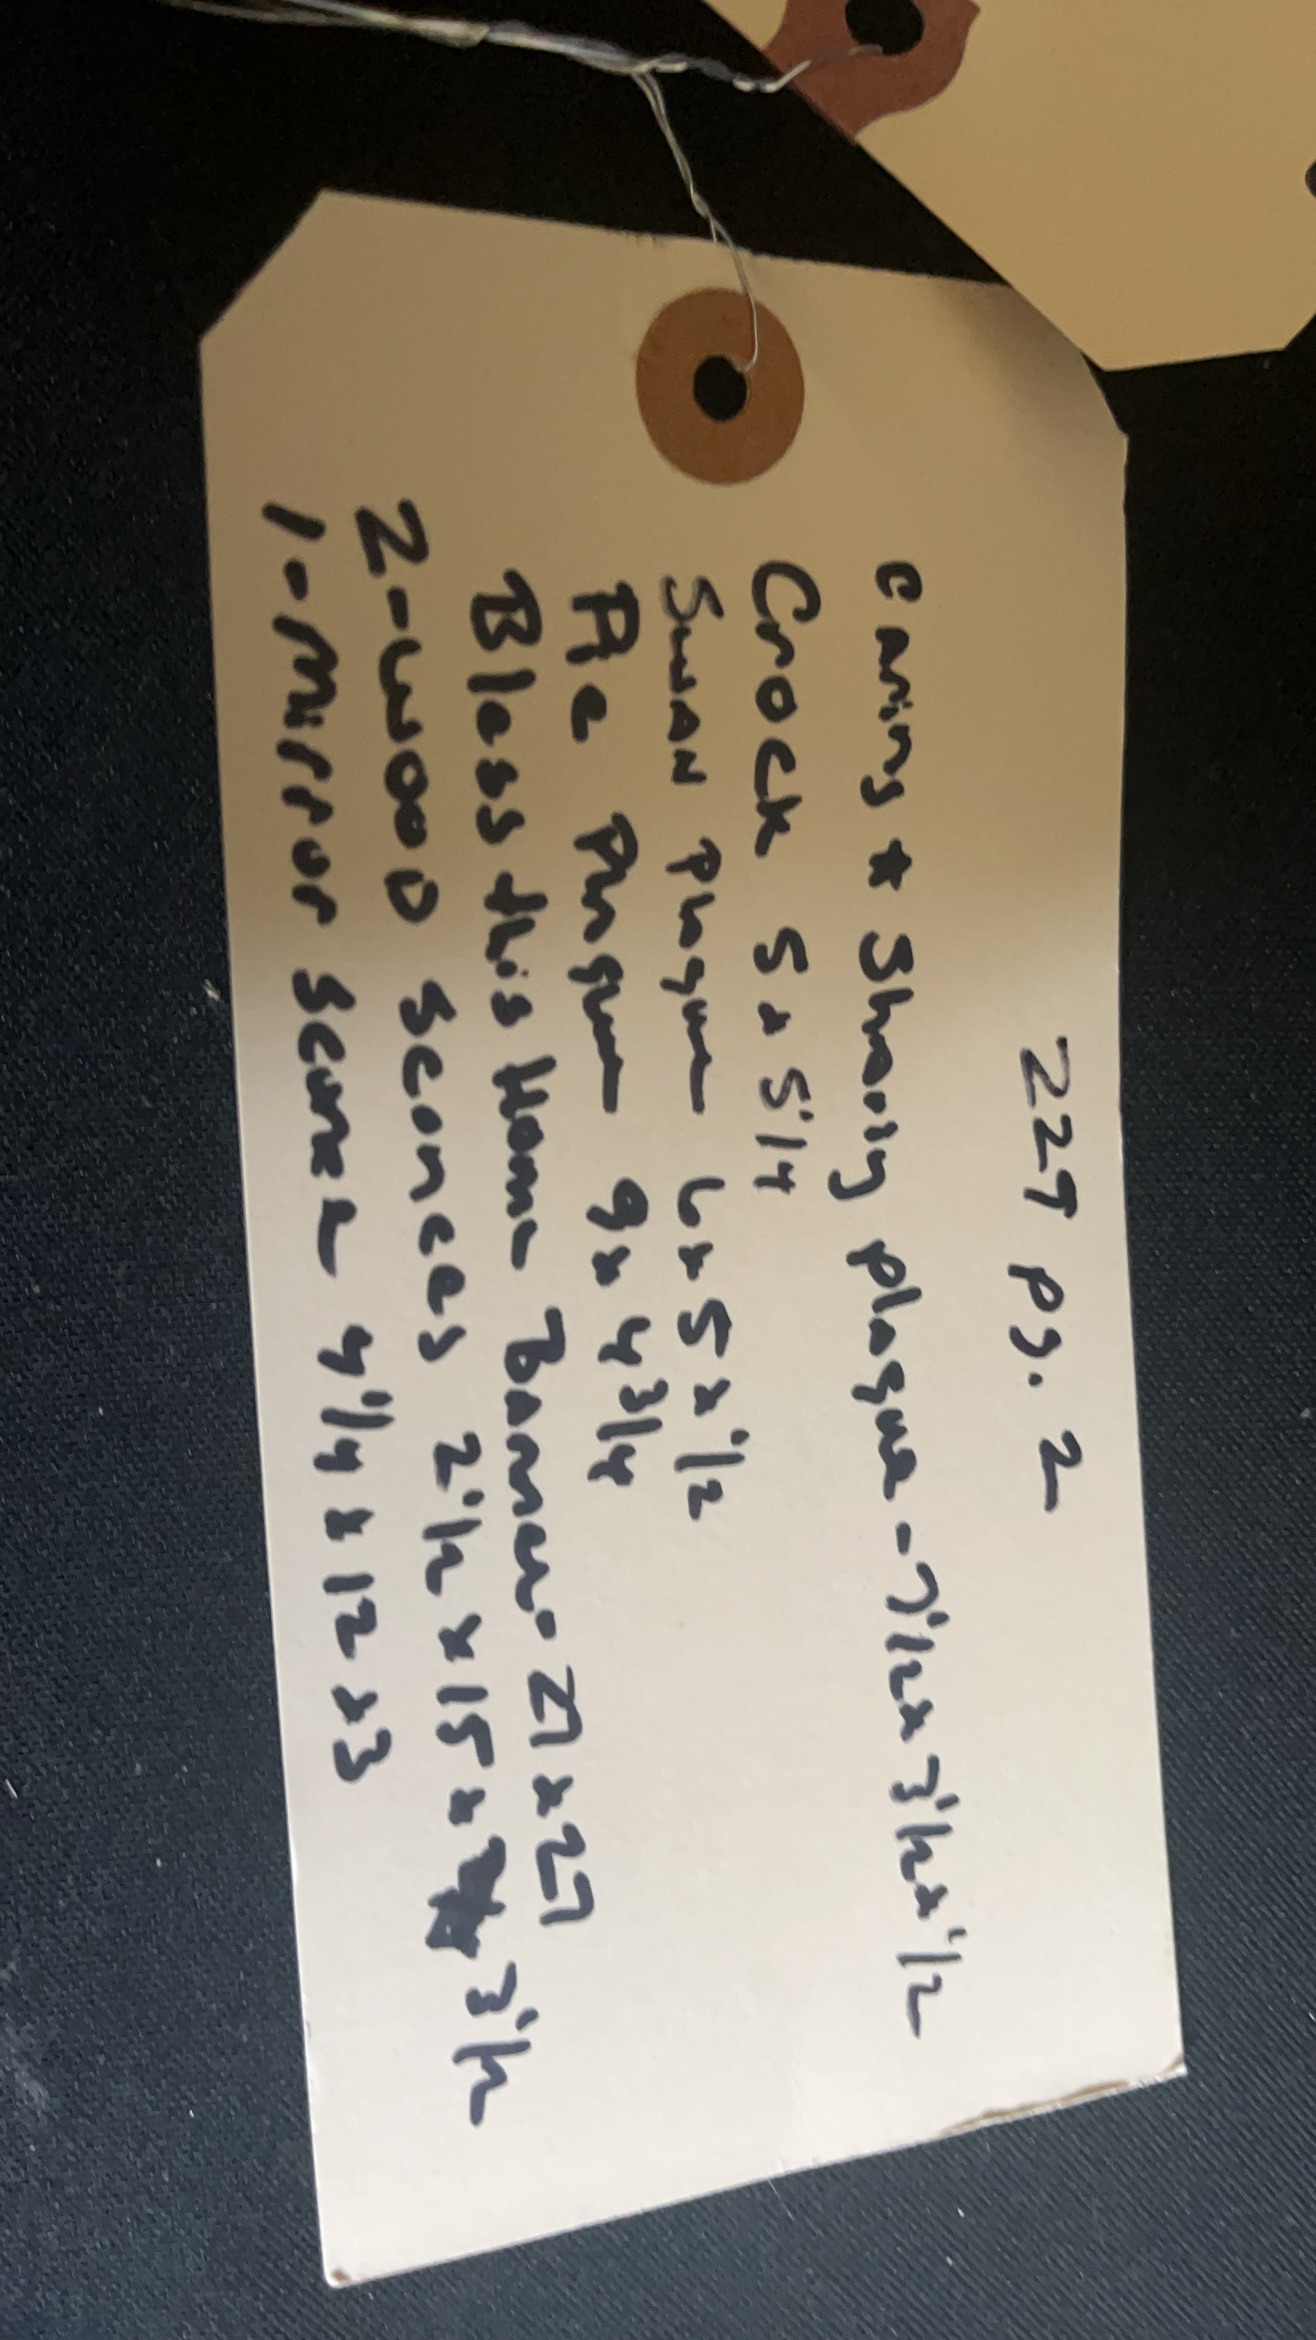 229 pg. 2
Caring & Sharing plaque - 7 1/2 x 3 1/2 x 1/2
Crock 5 x 5 1/4
Swan Plaque 6 x 5 x 1/2
Pie Plaque 9 x 4 3/4
Bless this Home Banner 27 x 27
2-wood Sconces 2 1/2 x 15 x 3 1/2
1-mirror Sconce 4 1/4 x 12 x 3